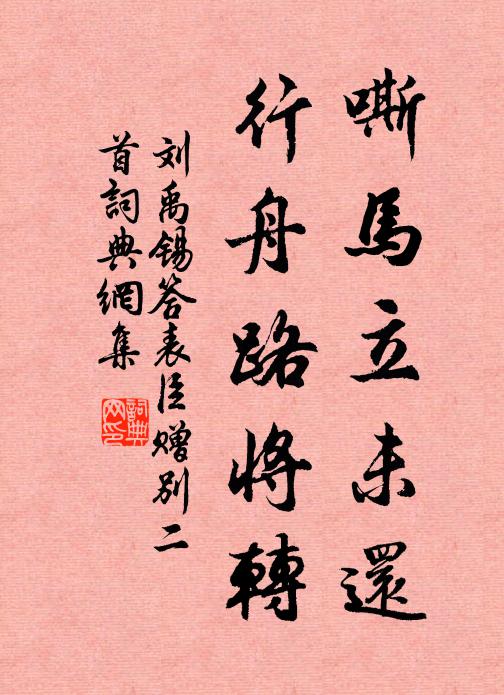 嘶馬立未還
行舟路將轉
刘禹锡答表臣赠别二
首詞典網集
詞典
网印